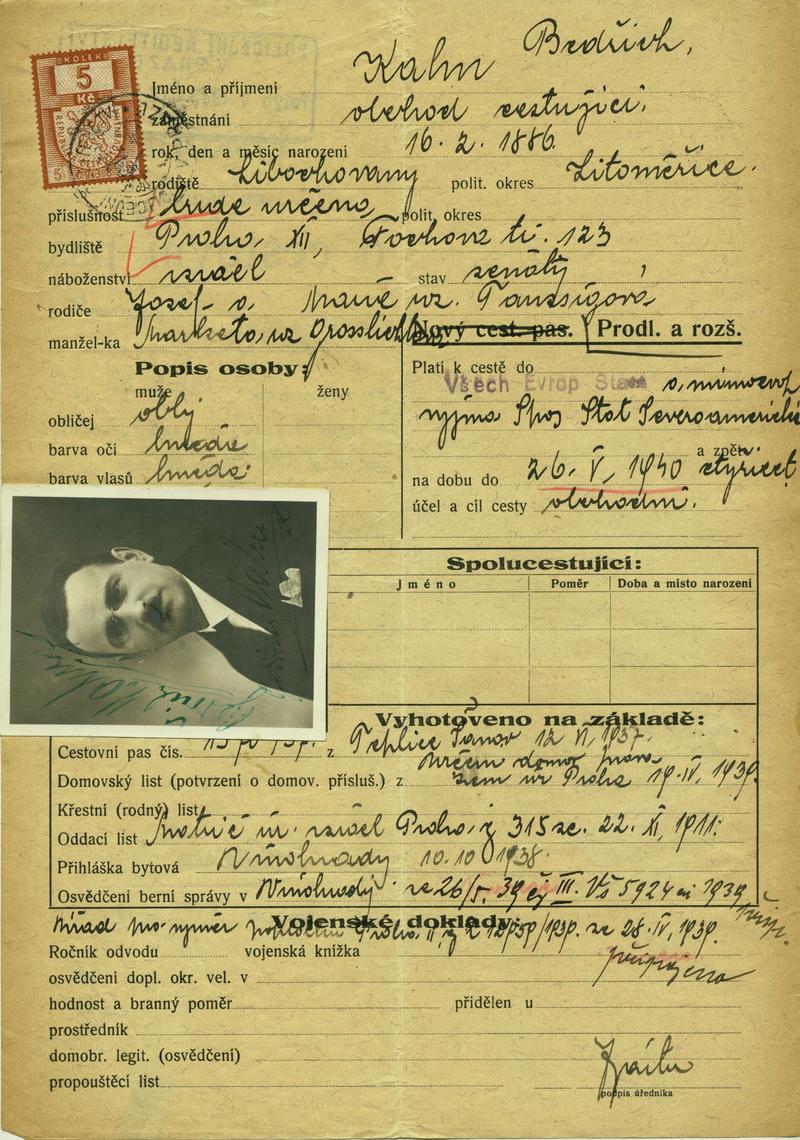 KOLEK
5
Kč
Jméno a příjmení Kahn Bedřich,
zaměstnání obchod cestující.
rok, den a měsíc narození 16. 2. 1886.
rodiště Libochovany polit. okres Litoměřice.
příslušnost bude určeno, polit. okres
bydliště Praha XII, Fochova tř. 123
náboženství israel stav ženatý
rodiče Josef a Marie roz. Taussigova
manžel-ka Marketa roz
Nový cest. pas. Prodl. a rozš.
Popis osoby:
muže ženy
obličej oblý
barva očí hnědé
barva vlasů hnědé
Platí k cestě do
Všech Evrop Států a mimoevrop
vyjma Spoj Stát Severoamerick
a zpět
na dobu do 26. V. 1940 čtyřicet
účel a cíl cesty obchodní.
Spolucestující:
Jméno Poměr Doba a místo narození
Vyhotoveno na základě:
Cestovní pas čís. z Teplice Šanov 12 VI, 1937.
určen domov
Domovský list (potvrzení o domov. přísluš.) z Praha 19. IV, 1939.
Křestní (rodný) list
Oddací list israel Praha, 315 ze. 22. XI, 1911.
Přihláška bytová Vinohrady 10. 10 1938.
Osvědčení berní správy v Vinohrady ze 26/5. 39 čj III. 5924 1939
Vojenské doklady:
Úřad pro Praha ze 28. IV, 1939.
Ročník odvodu vojenská knížka připojena
osvědčení dopl. okr. vel. v
hodnost a branný poměr přidělen u
prostředník
domobr. legit. (osvědčení)
propouštěcí list
podpis úředníka